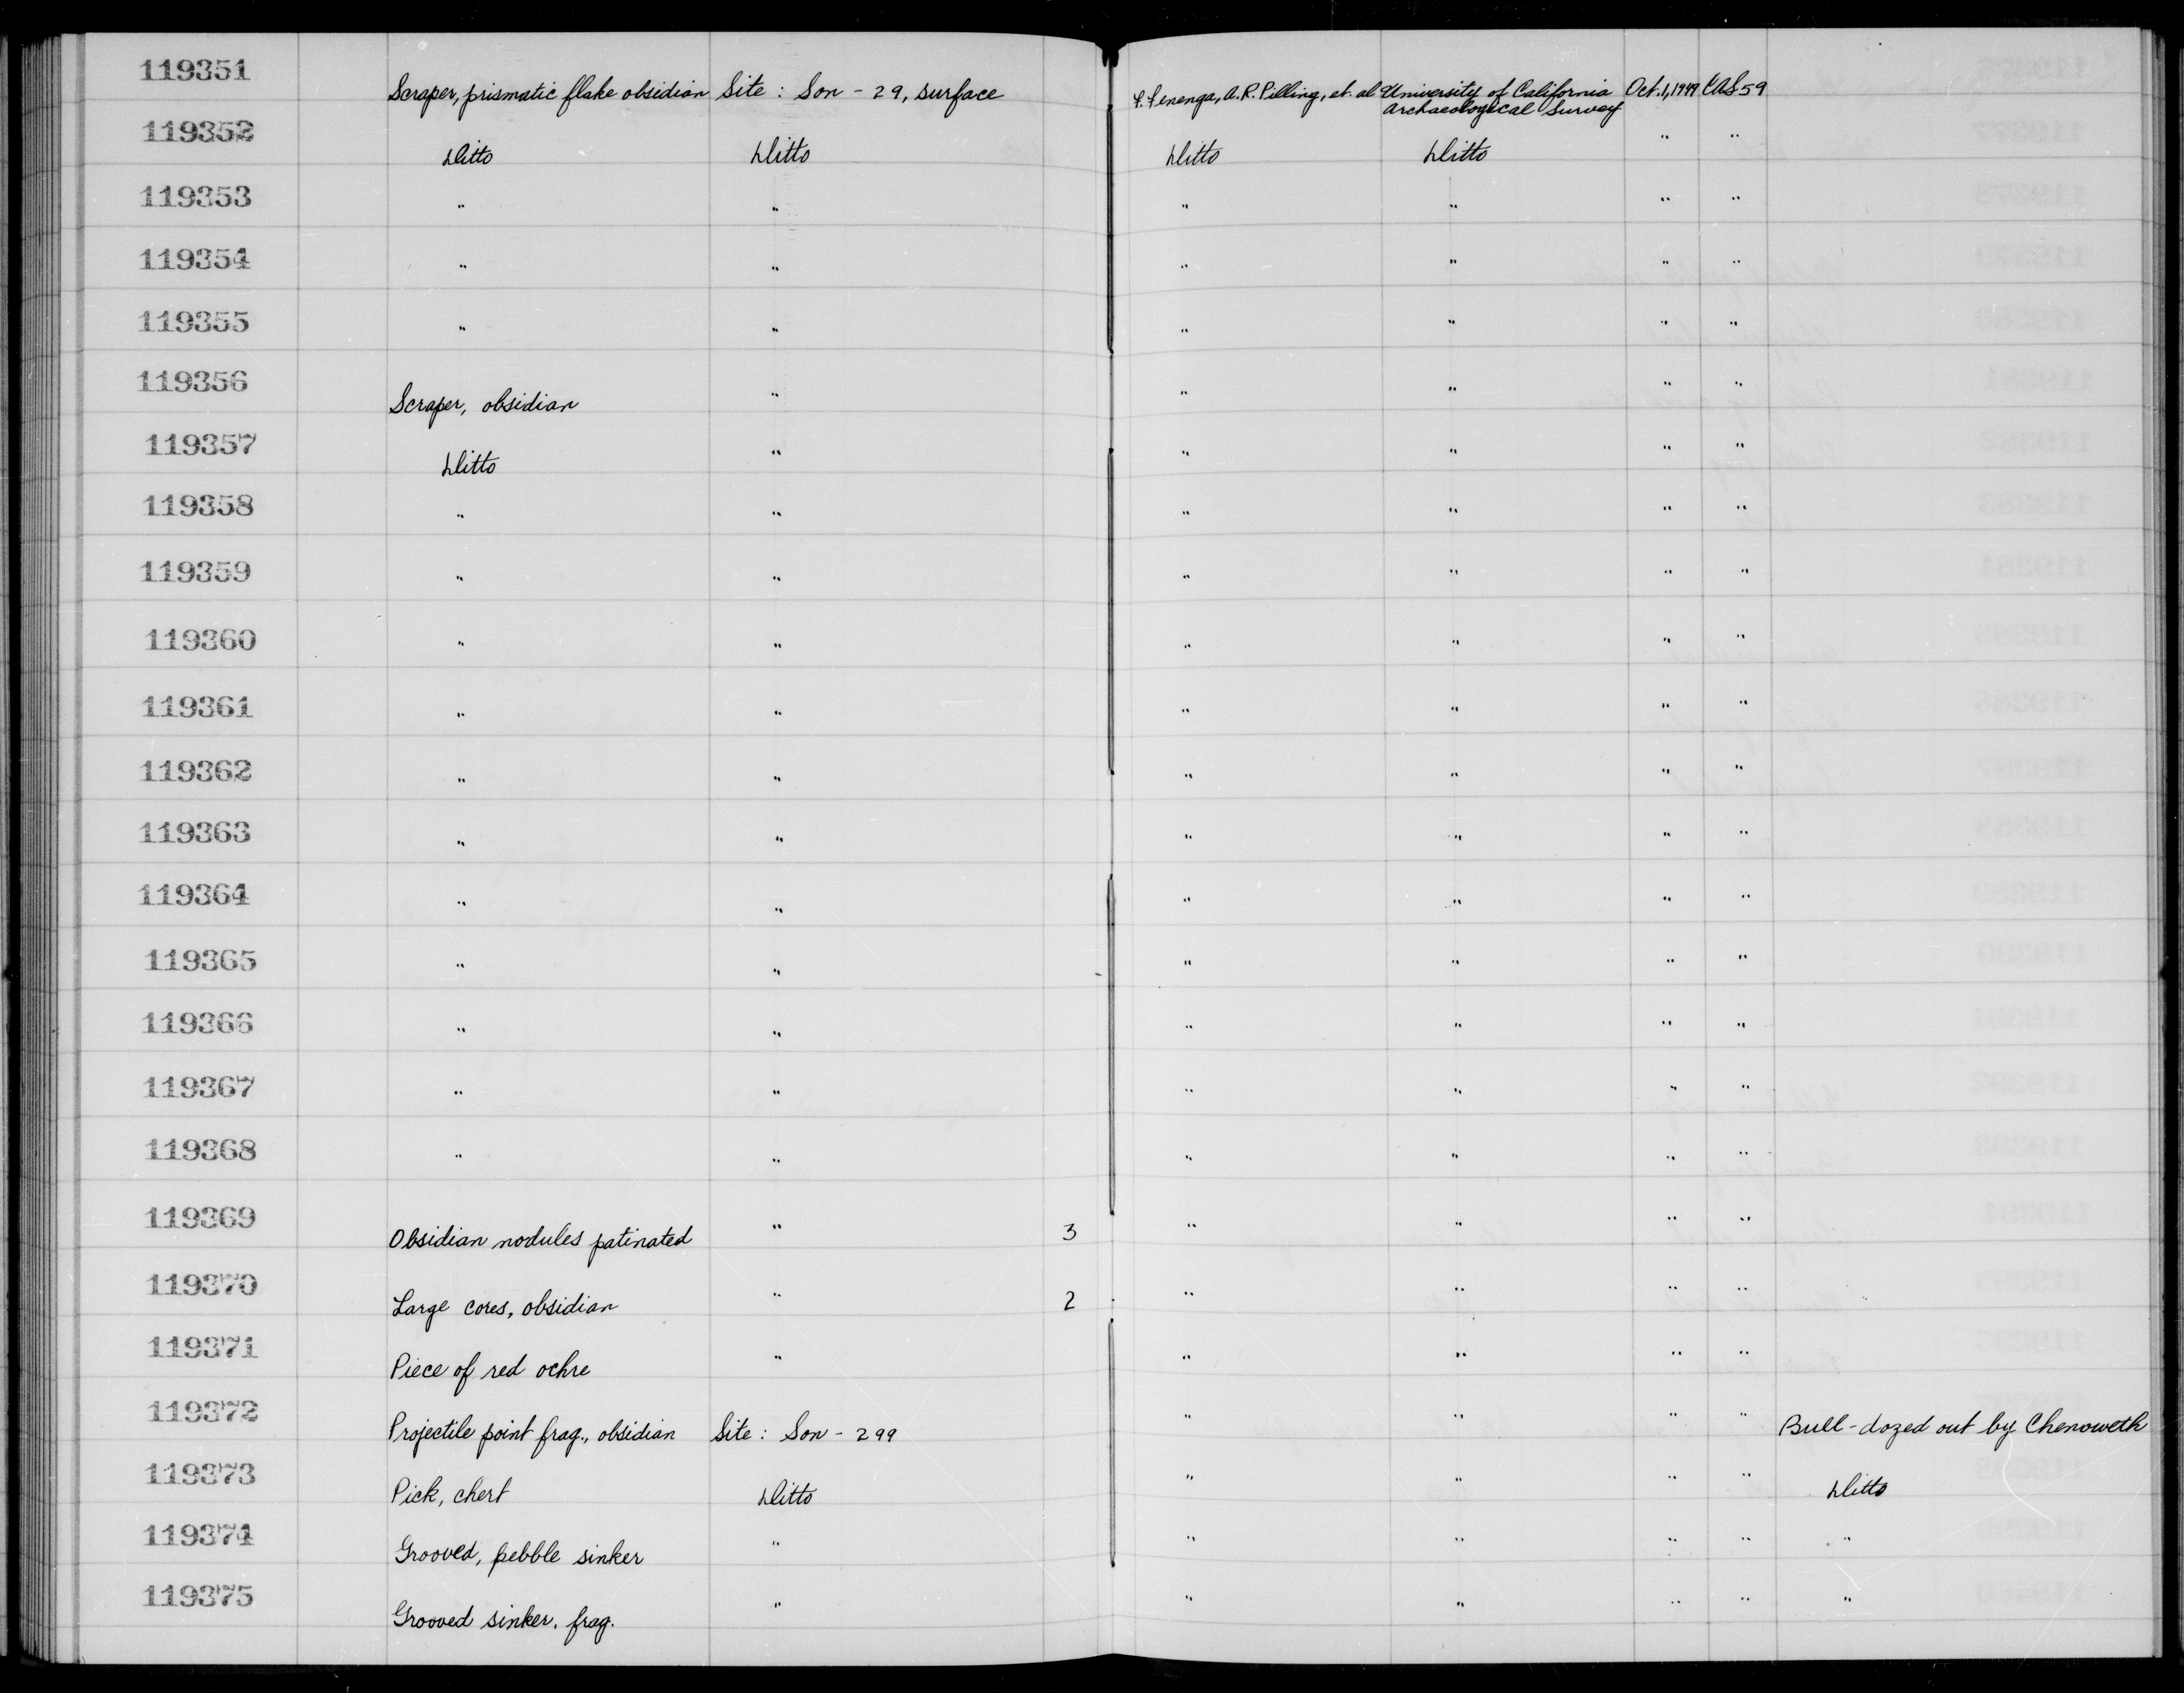 119351 Scraper, prismatic flake obsidian Site : Son - 29, surface F. Fenenga, A.R. Pilling, et. al University of California Archaeological Survey Oct. 1, 1949 UAS 59
119352 Ditto Ditto Ditto Ditto " "
119353 " " " " " "
119354 " " " " " "
119355 " " " " " "
119356 Scraper, obsidian " " " " "
119357 Ditto " " " " "
119358 " " " " " "
119359 " " " " " "
119360 " " " " " "
119361 " " " " " "
119362 " " " " " "
119363 " " " " " "
119364 " " " " " "
119365 " " " " " "
119366 " " " " " "
119367 " " " " " "
119368 " " " " " "
119369 Obsidian nodules patinated " 3 " " " "
119370 Large cores, obsidian " 2 " " " "
119371 Piece of red ochre " " " " "
119372 Projectile point frag., obsidian Site : Son - 299 " " " " Bull-dozed out by Chenoweth
119373 Pick, chert Ditto " " " " Ditto
119374 Grooved, pebble sinker " " " " " "
119375 Grooved sinker, frag. " " " " " "